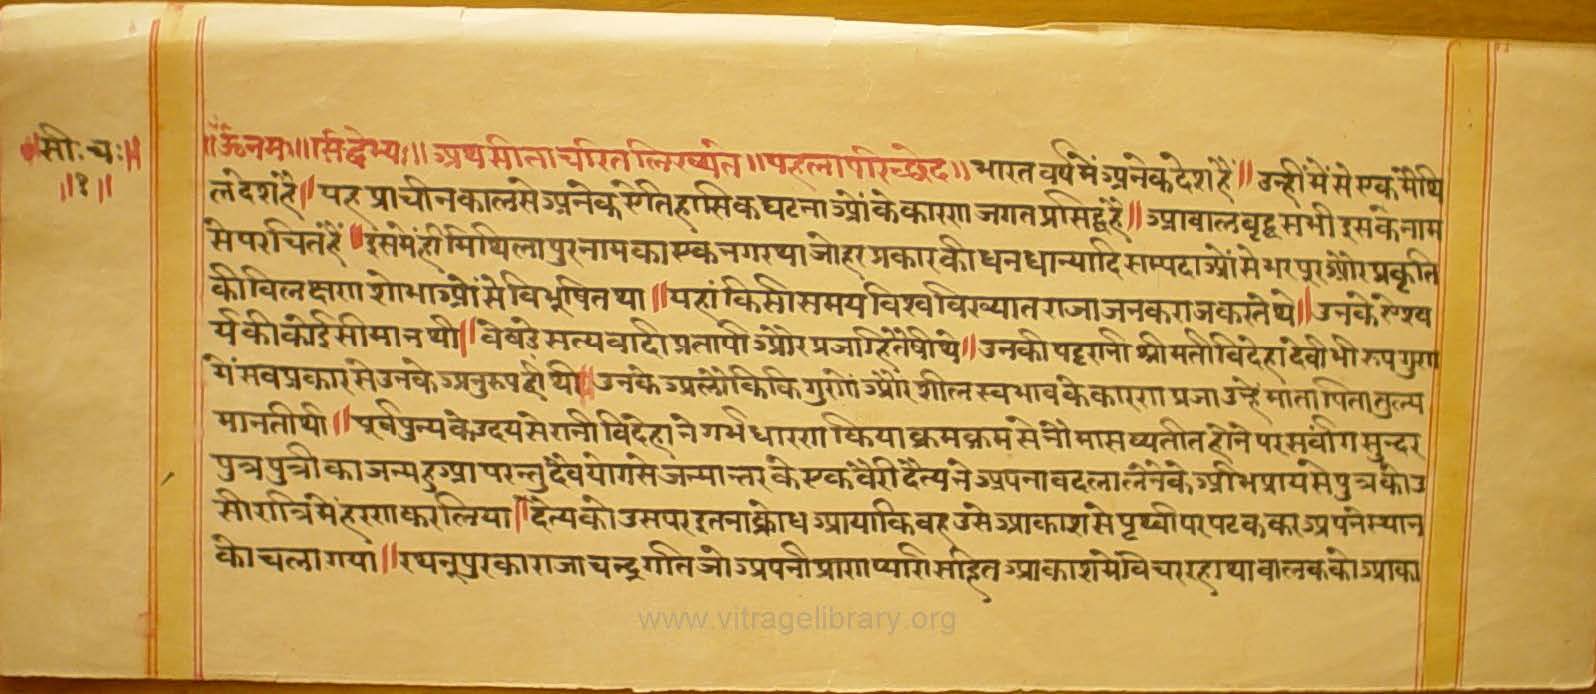 ॥सी॰च॰॥
॥१॥
॥ॐ नमः॥ सिद्धेभ्यः॥ अथ सीता चरित लिख्यते॥ पहला परिच्छेद॥ भारत वर्ष में अनेक देश हैं॥ उन्हीं में से एक मैथि
ल देश है॥ यह प्राचीन काल से अनेक ऐतिहासिक घटनाओं के कारण जगत प्रसिद्ध है॥ आबाल वृद्ध सभी इसके नाम
से परचित हैं॥ इसमें ही मिथिलापुर नाम का एक नगर था जो हर प्रकार की धन धान्यादि सम्पदाओं से भरपूर और प्रकृति
की विलक्षण शोभाओं से विभूषित था॥ यहां किसी समय विश्व विख्यात राजा जनक राज करते थे॥ उनके ऐश्व
र्य की कोई सीमा न थी॥ वे बडे सत्यवादी प्रतापी और प्रजा हितैषी थे॥ उनकी पट्टरानी श्रीमती विदेहा देवी भी रूप गुण
में सब प्रकार से उनके अनुरूप ही थी॥ उनके अलौकिक गुणों और शील स्वभाव के कारण प्रजा उन्हे माता पिता तुल्य
मानती थी॥ पूर्व पुन्य के उदय से रानी विदेहा ने गर्भ धारण किया क्रम क्रम से नौ मास व्यतीत होने पर सर्वांग सुन्दर
पुत्र पुत्री का जन्म हुआ परन्तु दैव योग से जन्मान्तर के एक वैरी दैत्य ने अपना बदला लेने के अभिप्राय से पुत्र को उ
सी रात्रि में हरण कर लिया॥ दैत्य को उस पर इतना क्रोध आया कि वह उसे आकाश से पृथ्वी पर पटक कर अपने स्थान
को चला गया॥ रथनूपुर का राजा चन्द्रगति जो अपनी प्राण प्यारी सहित आकाश में विचर रहा था बालक को आका
www.vitragelibrary.org